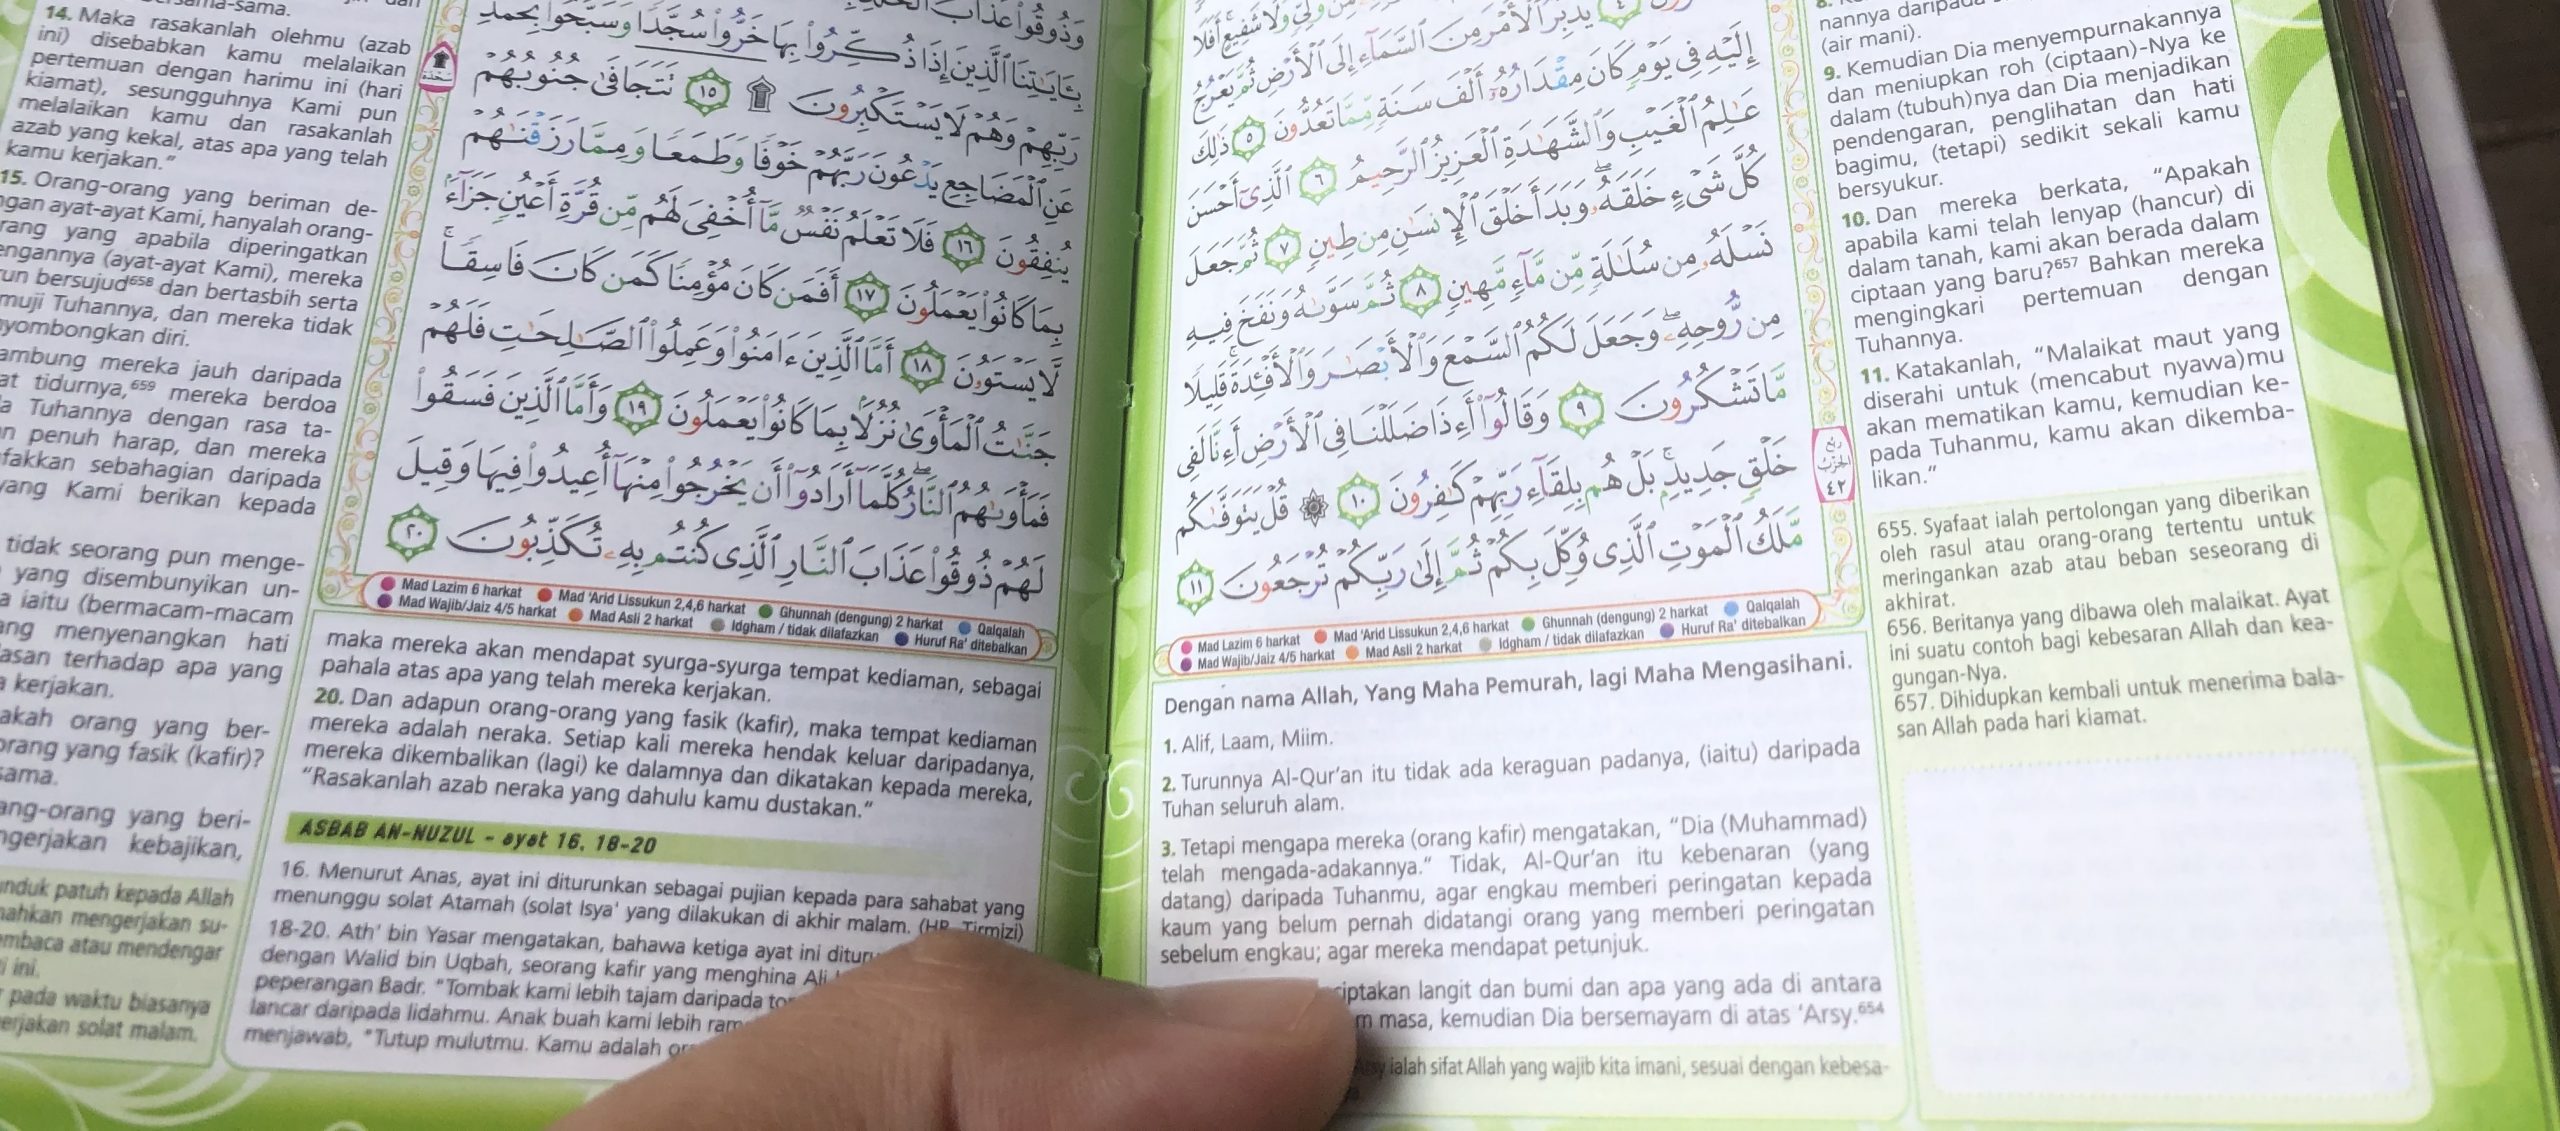 إِلَيْهِ فِى يَوْمٍ كَانَ مِقْدَارُهُۥٓ أَلْفَ سَنَةٍ مِّمَّا تَعُدُّونَ ٥ ذَٰلِكَ
عَٰلِمُ ٱلْغَيْبِ وَٱلشَّهَٰدَةِ ٱلْعَزِيزُ ٱلرَّحِيمُ ٦ ٱلَّذِىٓ أَحْسَنَ
كُلَّ شَىْءٍ خَلَقَهُۥ ۖ وَبَدَأَ خَلْقَ ٱلْإِنسَٰنِ مِن طِينٍ ٧ ثُمَّ جَعَلَ
نَسْلَهُۥ مِن سُلَٰلَةٍ مِّن مَّآءٍ مَّهِينٍ ٨ ثُمَّ سَوَّىٰهُ وَنَفَخَ فِيهِ
مِن رُّوحِهِۦ ۖ وَجَعَلَ لَكُمُ ٱلسَّمْعَ وَٱلْأَبْصَٰرَ وَٱلْأَفْـِٔدَةَ ۚ قَلِيلًا
مَّا تَشْكُرُونَ ٩ وَقَالُوٓا۟ أَءِذَا ضَلَلْنَا فِى ٱلْأَرْضِ أَءِنَّا لَفِى
خَلْقٍ جَدِيدٍۭ ۚ بَلْ هُم بِلِقَآءِ رَبِّهِمْ كَٰفِرُونَ ١٠ ۞ قُلْ يَتَوَفَّىٰكُم
مَّلَكُ ٱلْمَوْتِ ٱلَّذِى وُكِّلَ بِكُمْ ثُمَّ إِلَىٰ رَبِّكُمْ تُرْجَعُونَ ١١
ربع
الحزب
٤٢
Mad Lazim 6 harkat Mad 'Arid Lissukun 2,4,6 harkat Ghunnah (dengung) 2 harkat Qalqalah
Mad Wajib/Jaiz 4/5 harkat Mad Asli 2 harkat Idgham / tidak dilafazkan Huruf Ra' ditebalkan
Dengan nama Allah, Yang Maha Pemurah, lagi Maha Mengasihani.
1. Alif, Laam, Miim.
2. Turunnya Al-Qur'an itu tidak ada keraguan padanya, (iaitu) daripada
Tuhan seluruh alam.
3. Tetapi mengapa mereka (orang kafir) mengatakan, "Dia (Muhammad)
telah mengada-adakannya." Tidak, Al-Qur'an itu kebenaran (yang
datang) daripada Tuhanmu, agar engkau memberi peringatan kepada
kaum yang belum pernah didatangi orang yang memberi peringatan
sebelum engkau; agar mereka mendapat petunjuk.
langit dan bumi dan apa yang ada di antara
masa, kemudian Dia bersemayam di atas 'Arsy.654
ialah sifat Allah yang wajib kita imani, sesuai dengan kebesa-
nannya daripada
(air mani).
9. Kemudian Dia menyempurnakannya
dan meniupkan roh (ciptaan)-Nya ke
dalam (tubuh)nya dan Dia menjadikan
pendengaran, penglihatan dan hati
bagimu, (tetapi) sedikit sekali kamu
bersyukur.
10. Dan mereka berkata, "Apakah
apabila kami telah lenyap (hancur) di
dalam tanah, kami akan berada dalam
ciptaan yang baru?657 Bahkan mereka
mengingkari pertemuan dengan
Tuhannya.
11. Katakanlah, "Malaikat maut yang
diserahi untuk (mencabut nyawa)mu
akan mematikan kamu, kemudian ke-
pada Tuhanmu, kamu akan dikemba-
likan."
655. Syafaat ialah pertolongan yang diberikan
oleh rasul atau orang-orang tertentu untuk
meringankan azab atau beban seseorang di
akhirat.
656. Beritanya yang dibawa oleh malaikat. Ayat
ini suatu contoh bagi kebesaran Allah dan kea-
gungan-Nya.
657. Dihidupkan kembali untuk menerima bala-
san Allah pada hari kiamat.
بِـَٔايَٰتِنَا ٱلَّذِينَ إِذَا ذُكِّرُوا۟ بِهَا خَرُّوا۟ سُجَّدًا وَسَبَّحُوا۟ بِحَمْدِ
رَبِّهِمْ وَهُمْ لَا يَسْتَكْبِرُونَ ۩ ١٥ تَتَجَافَىٰ جُنُوبُهُمْ
عَنِ ٱلْمَضَاجِعِ يَدْعُونَ رَبَّهُمْ خَوْفًا وَطَمَعًا وَمِمَّا رَزَقْنَٰهُمْ
يُنفِقُونَ ١٦ فَلَا تَعْلَمُ نَفْسٌ مَّآ أُخْفِىَ لَهُم مِّن قُرَّةِ أَعْيُنٍ جَزَآءًۢ
بِمَا كَانُوا۟ يَعْمَلُونَ ١٧ أَفَمَن كَانَ مُؤْمِنًا كَمَن كَانَ فَاسِقًا ۚ
لَّا يَسْتَوُۥنَ ١٨ أَمَّا ٱلَّذِينَ ءَامَنُوا۟ وَعَمِلُوا۟ ٱلصَّٰلِحَٰتِ فَلَهُمْ
جَنَّٰتُ ٱلْمَأْوَىٰ نُزُلًۢا بِمَا كَانُوا۟ يَعْمَلُونَ ١٩ وَأَمَّا ٱلَّذِينَ فَسَقُوا۟
فَمَأْوَىٰهُمُ ٱلنَّارُ ۖ كُلَّمَآ أَرَادُوٓا۟ أَن يَخْرُجُوا۟ مِنْهَآ أُعِيدُوا۟ فِيهَا وَقِيلَ
لَهُمْ ذُوقُوا۟ عَذَابَ ٱلنَّارِ ٱلَّذِى كُنتُم بِهِۦ تُكَذِّبُونَ ٢٠
Mad Lazim 6 harkat Mad 'Arid Lissukun 2,4,6 harkat Ghunnah (dengung) 2 harkat Qalqalah
Mad Wajib/Jaiz 4/5 harkat Mad Asli 2 harkat Idgham / tidak dilafazkan Huruf Ra' ditebalkan
14. Maka rasakanlah olehmu (azab
ini) disebabkan kamu melalaikan
pertemuan dengan harimu ini (hari
kiamat), sesungguhnya Kami pun
melalaikan kamu dan rasakanlah
azab yang kekal, atas apa yang telah
kamu kerjakan."
15. Orang-orang yang beriman de-
ayat-ayat Kami, hanyalah orang-
yang apabila diperingatkan
(ayat-ayat Kami), mereka
bersujud658 dan bertasbih serta
Tuhannya, dan mereka tidak
diri.
mereka jauh daripada
tidurnya,659 mereka berdoa
Tuhannya dengan rasa ta-
penuh harap, dan mereka
sebahagian daripada
yang Kami berikan kepada
tidak seorang pun menge-
yang disembunyikan un-
iaitu (bermacam-macam
menyenangkan hati
terhadap apa yang
kerjakan.
orang yang ber-
yang fasik (kafir)?
yang beri-
kebajikan,
patuh kepada Allah
mengerjakan su-
atau mendengar
ini.
pada waktu biasanya
solat malam.
maka mereka akan mendapat syurga-syurga tempat kediaman, sebagai
pahala atas apa yang telah mereka kerjakan.
20. Dan adapun orang-orang yang fasik (kafir), maka tempat kediaman
mereka adalah neraka. Setiap kali mereka hendak keluar daripadanya,
mereka dikembalikan (lagi) ke dalamnya dan dikatakan kepada mereka,
"Rasakanlah azab neraka yang dahulu kamu dustakan."
ASBAB AN-NUZUL - ayat 16, 18-20
16. Menurut Anas, ayat ini diturunkan sebagai pujian kepada para sahabat yang
menunggu solat Atamah (solat Isya' yang dilakukan di akhir malam. (HR. Tirmizi)
18-20. Ath' bin Yasar mengatakan, bahawa ketiga ayat ini
dengan Walid bin Uqbah, seorang kafir yang menghina Ali
peperangan Badr. "Tombak kami lebih tajam daripada
lancar daripada lidahmu. Anak buah kami lebih
menjawab, "Tutup mulutmu. Kamu adalah